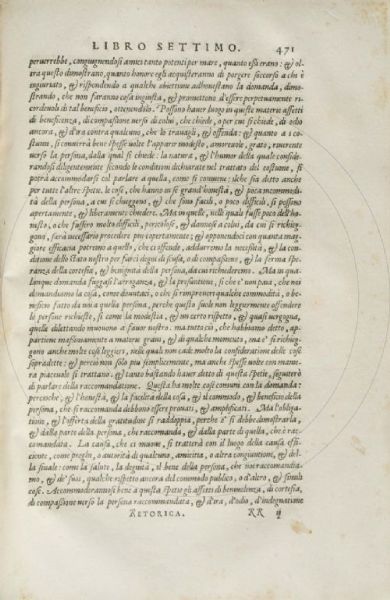 LIBRO SETTIMO. 471
peruerrebbe, congiugnendosi amici tanto potenti per mare, quanto essi erano: & ol
tra questo dimostrano, quanto honore egli acquisteranno di porgere soccorso a chi è
ingiuriato, & rispondendo a qualche obiettione adhonestano la domanda, dimo-
strando, che non faranno cosa ingiusta, & promettono d'essere perpetuamente ri-
cordeuoli di tal beneficio, ottenendolo. Possono hauer luogo in queste materie affetti
di beneficenza, di compassione verso di colui, che chiede, o per cui si chiede, di odio
ancora, & d'ira contra qualcuno, che lo trauagli, & offenda: & quanto a i co-
stumi, si conuerrà bene spesse volte l'apparir modesto, amoreuole, grato, riuerente
verso la persona, dalla qual si chiede: la natura, & l'humor della quale consideran-
dosi diligentemente secondo le conditioni dichiarate nel trattato del costume, si
potrà accommodarsi nel parlare a quella, come si conuiene: ilche sia detto anche
per tutte l'altre spetie. le cose, che hanno in se grand'honestà, & poca incommodi-
tà della persona, a cui si chieggono, & che sono facili, o poco difficili, si possono
apertamente, & liberamente chiedere. Ma in quelle, nelle quali fusse poco dell'ho-
nesto, o che fussero molto difficili, pericolose, & dannose a colui, da cui si richieg-
gono, sarà necessario procedere piu copertamente; & opponendoci con quanta mag-
giore efficacia potremo a quello, che ci offende, addurremo la necessità, & la con-
ditione dello stato nostro per farci degni di scusa, o di compassione, & la ferma spe-
ranza della cortesia, & benignità della persona, da cui richiederemo. Ma in qua-
lunque domanda fuggasi l'arroganza, & la prosuntione, si che e' non paia, che noi
domandiamo la cosa, come douutaci, o che si rimproueri qualche commodità, o be-
neficio fatto da noi a quella persona, perche questo suole non leggermente offendere
le persone richieste, si come la modestia, & un certo rispetto, & quasi vergogna,
quelle dilettando muouono a fauor nostro. ma tutto ciò, che habbiamo detto, ap-
partiene massimamente a materie graui, & di qualche momento, ma e' si richieg-
gono anche molte cose leggieri, nelle quali non cade molto la consideratione delle cose
sopradette; & perciò non solo piu semplicemente, ma anche spesse volte con manie-
ra piaceuole si trattano. & tanto bastando hauer detto di questa spetie, seguiterò
di parlare della raccomandatione. Questa ha molte cose comuni con la domanda:
percioche, & l'honestà, & la facilità della cosa, & il commodo, & beneficio della
persona, che si raccomanda debbono essere prouati, & amplificati. Ma l'obliga-
tione, & l'offerta della gratitudine si raddoppia, perche e' si debbe dimostrarla,
& dalla parte della persona, che raccomanda, & dalla parte di quella, che è rac-
comandata. La causa, che ci muoue, si tratterà con il luogo della causa effi-
ciente, come preghi, o autorità di qualcuno, amicitia, o altra congiuntione, & del-
la finale: come la salute, la degnità, il bene della persona, che noi raccomandia-
mo, & de' suoi, qualche rispetto ancora del commodo publico, o d'altro, & simili
cose. Accommoderannosi bene a questa spetie gli affetti di beneuolenza, di cortesia,
di compassione verso la persona raccomandata, & d'ira, d'odio, d'indegnatione
RETORICA. RR ij